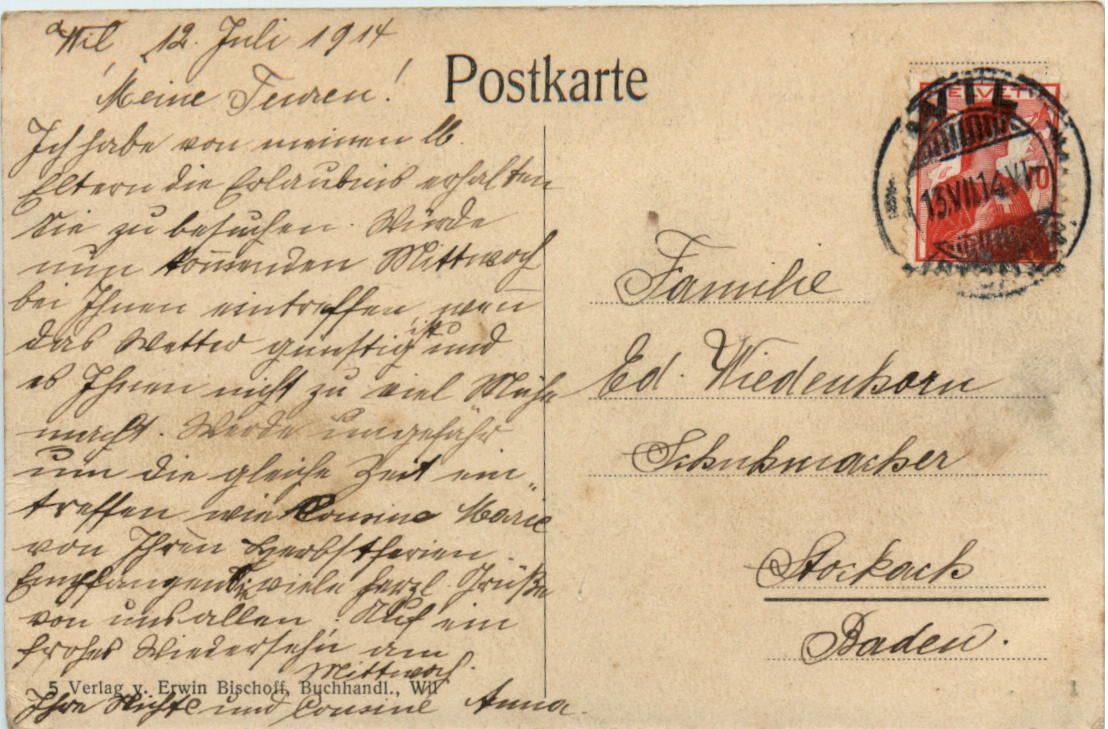 Wil, 12. Juli 1914
Meine Teuren!
Ich habe von meinen lb.
Eltern die Erlaubnis erhalten
Sie zu besuchen. Würde
nun kom̄enden Mittwoch
bei Ihnen eintreffen, wen̄
das Wetter günstig ist und
es Ihnen nicht zu viel Mühe
macht. Werde ungefähr
um die gleiche Zeit ein-
treffen wie Cousine Marie
von Ihren Herbstferien.
Empfangen Sie viele herzl. Grüße
von uns allen! Auf ein
frohes Wiedersehn am
Mittwoch.
Ihre Nichte und Cousine Anna.
5 Verlag v. Erwin Bischoff, Buchhandl., Wil
Postkarte
HELVETIA
WIL
13.VII.14.VI
Familie
Ed. Wiedenhorn
Schuhmacher
Stockach
Baden.
1